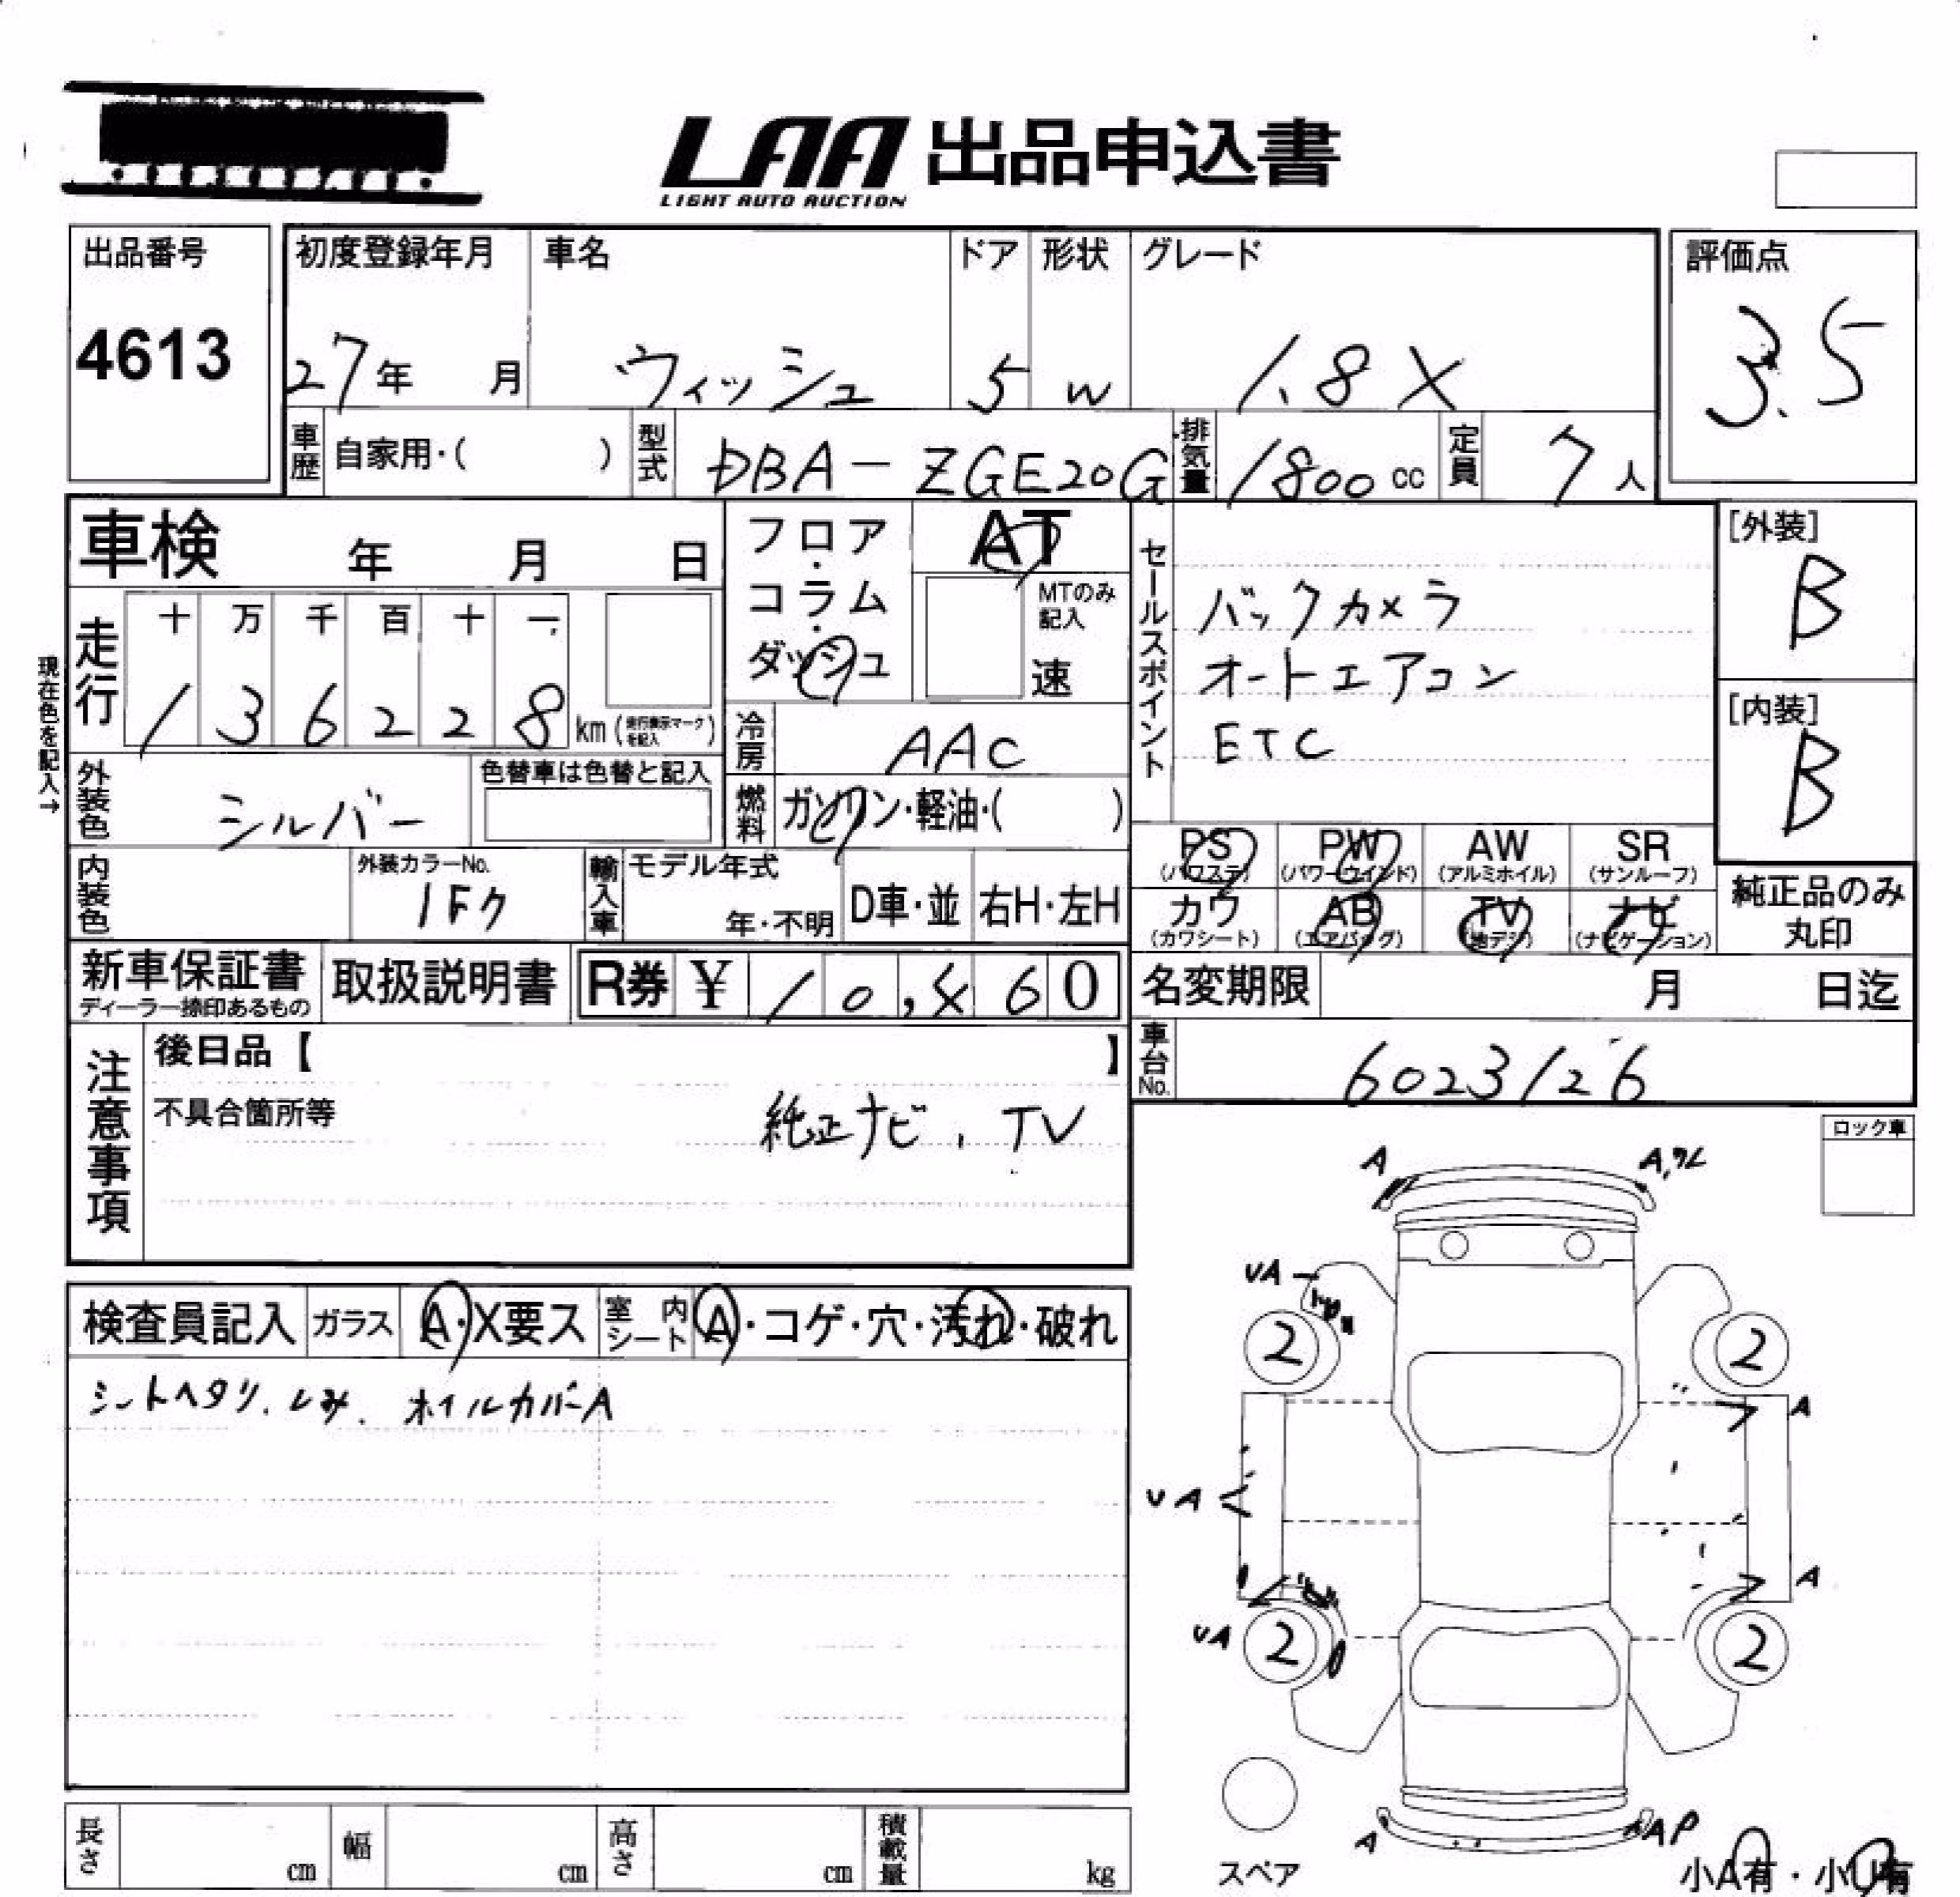 LAA 出品申込書
LIGHT AUTO AUCTION
出品番号
4613
初度登録年月 車名 ドア 形状 グレード
27年 月 ウィッシュ 5 W 1.8X
評価点
3.5
車歴 自家用・( ) 型式 DBA-ZGE20G 排気量 1800cc 定員 7人
車検 年 月 日
フロア・コラム・ダッシュ
AT
MTのみ記入
速
現在色を記入→
走行 十 万 千 百 十 一
1 3 6 2 2 8 km (走行表示マークを記入)
冷房 AAC
外装色 シルバー 色替車は色替と記入
燃料 ガソリン・軽油・( )
内装色 外装カラーNo. 1F7
輸入車 モデル年式 年・不明 D車・並 右H・左H
セールスポイント
バックカメラ
オートエアコン
ETC
[外装]
B
[内装]
B
PS (パワステ) PW (パワーウインド) AW (アルミホイル) SR (サンルーフ)
カワ (カワシート) AB (エアバッグ) TV (地デジ) ナビ (ナビゲーション)
純正品のみ丸印
新車保証書 ディーラー捺印あるもの 取扱説明書 R券 ¥10,460
名変期限 月 日迄
車台No. 6023126
注意事項
後日品【 】
不具合箇所等
純正ナビ、TV
ロック車
検査員記入 ガラス A・X要ス 室内シート A・コゲ・穴・汚れ・破れ
シートヘタリ、しみ、ホイルカバーA
A A,ワレ
UA
2 2
A
UA
A
UA 2 2
A AP
スペア
小A有・小U有
長さ cm 幅 cm 高さ cm 積載量 kg